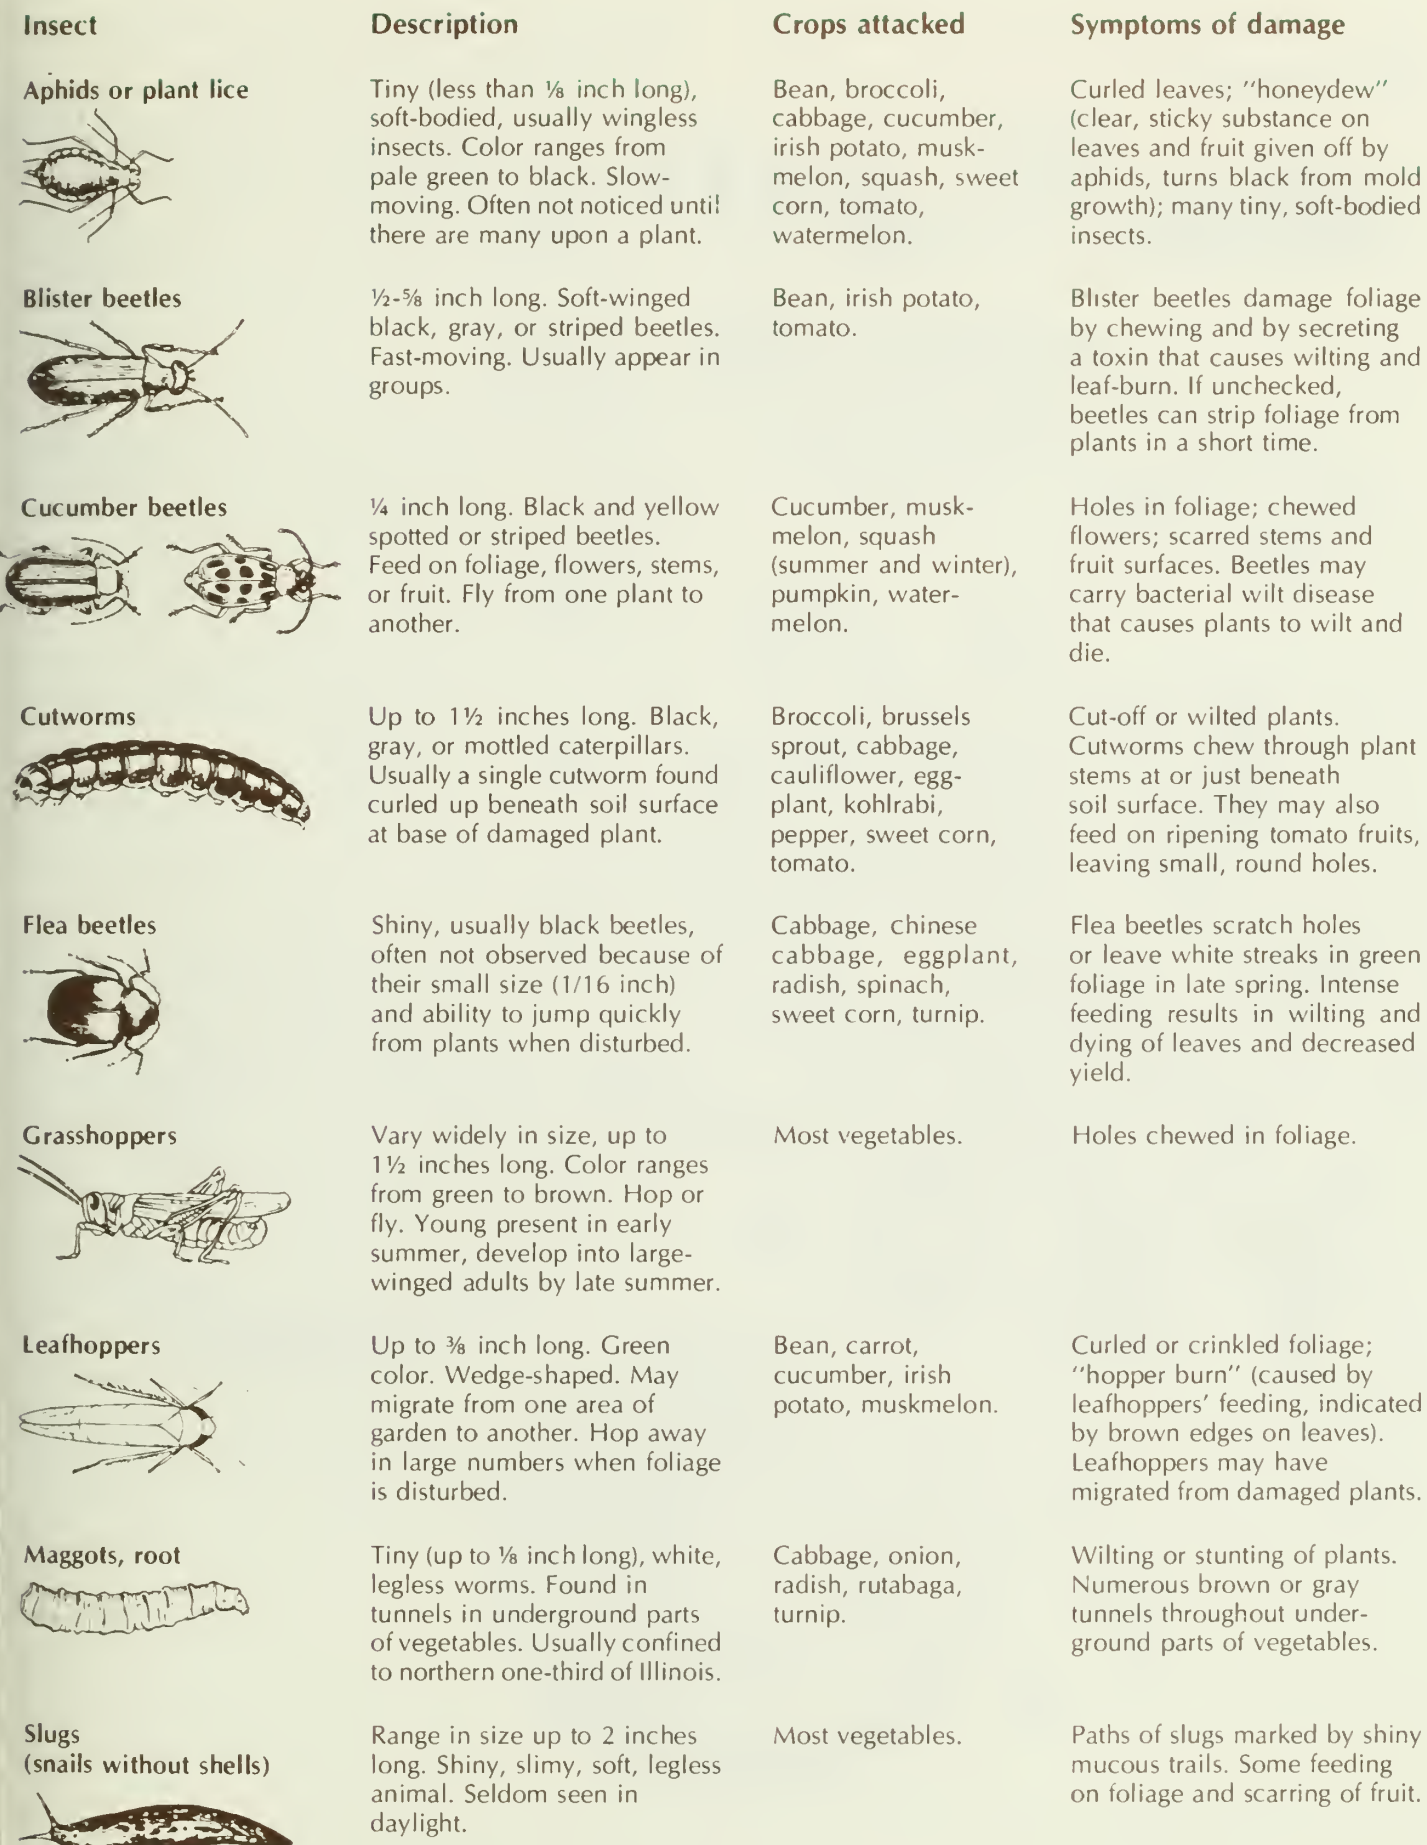 Insect Description Crops attacked Symptoms of damage
Aphids or plant lice
Tiny (less than ⅛ inch long),
soft-bodied, usually wingless
insects. Color ranges from
pale green to black. Slow-
moving. Often not noticed until
there are many upon a plant.
Bean, broccoli,
cabbage, cucumber,
irish potato, musk-
melon, squash, sweet
corn, tomato,
watermelon.
Curled leaves; "honeydew"
(clear, sticky substance on
leaves and fruit given off by
aphids, turns black from mold
growth); many tiny, soft-bodied
insects.
Blister beetles
½-⅝ inch long. Soft-winged
black, gray, or striped beetles.
Fast-moving. Usually appear in
groups.
Bean, irish potato,
tomato.
Blister beetles damage foliage
by chewing and by secreting
a toxin that causes wilting and
leaf-burn. If unchecked,
beetles can strip foliage from
plants in a short time.
Cucumber beetles
¼ inch long. Black and yellow
spotted or striped beetles.
Feed on foliage, flowers, stems,
or fruit. Fly from one plant to
another.
Cucumber, musk-
melon, squash
(summer and winter),
pumpkin, water-
melon.
Holes in foliage; chewed
flowers; scarred stems and
fruit surfaces. Beetles may
carry bacterial wilt disease
that causes plants to wilt and
die.
Cutworms
Up to 1½ inches long. Black,
gray, or mottled caterpillars.
Usually a single cutworm found
curled up beneath soil surface
at base of damaged plant.
Broccoli, brussels
sprout, cabbage,
cauliflower, egg-
plant, kohlrabi,
pepper, sweet corn,
tomato.
Cut-off or wilted plants.
Cutworms chew through plant
stems at or just beneath
soil surface. They may also
feed on ripening tomato fruits,
leaving small, round holes.
Flea beetles
Shiny, usually black beetles,
often not observed because of
their small size (1/16 inch)
and ability to jump quickly
from plants when disturbed.
Cabbage, chinese
cabbage, eggplant,
radish, spinach,
sweet corn, turnip.
Flea beetles scratch holes
or leave white streaks in green
foliage in late spring. Intense
feeding results in wilting and
dying of leaves and decreased
yield.
Grasshoppers
Vary widely in size, up to
1½ inches long. Color ranges
from green to brown. Hop or
fly. Young present in early
summer, develop into large-
winged adults by late summer.
Most vegetables.
Holes chewed in foliage.
Leafhoppers
Up to ⅜ inch long. Green
color. Wedge-shaped. May
migrate from one area of
garden to another. Hop away
in large numbers when foliage
is disturbed.
Bean, carrot,
cucumber, irish
potato, muskmelon.
Curled or crinkled foliage;
"hopper burn" (caused by
leafhoppers' feeding, indicated
by brown edges on leaves).
Leafhoppers may have
migrated from damaged plants.
Maggots, root
Tiny (up to ⅛ inch long), white,
legless worms. Found in
tunnels in underground parts
of vegetables. Usually confined
to northern one-third of Illinois.
Cabbage, onion,
radish, rutabaga,
turnip.
Wilting or stunting of plants.
Numerous brown or gray
tunnels throughout under-
ground parts of vegetables.
Slugs
(snails without shells)
Range in size up to 2 inches
long. Shiny, slimy, soft, legless
animal. Seldom seen in
daylight.
Most vegetables.
Paths of slugs marked by shiny
mucous trails. Some feeding
on foliage and scarring of fruit.